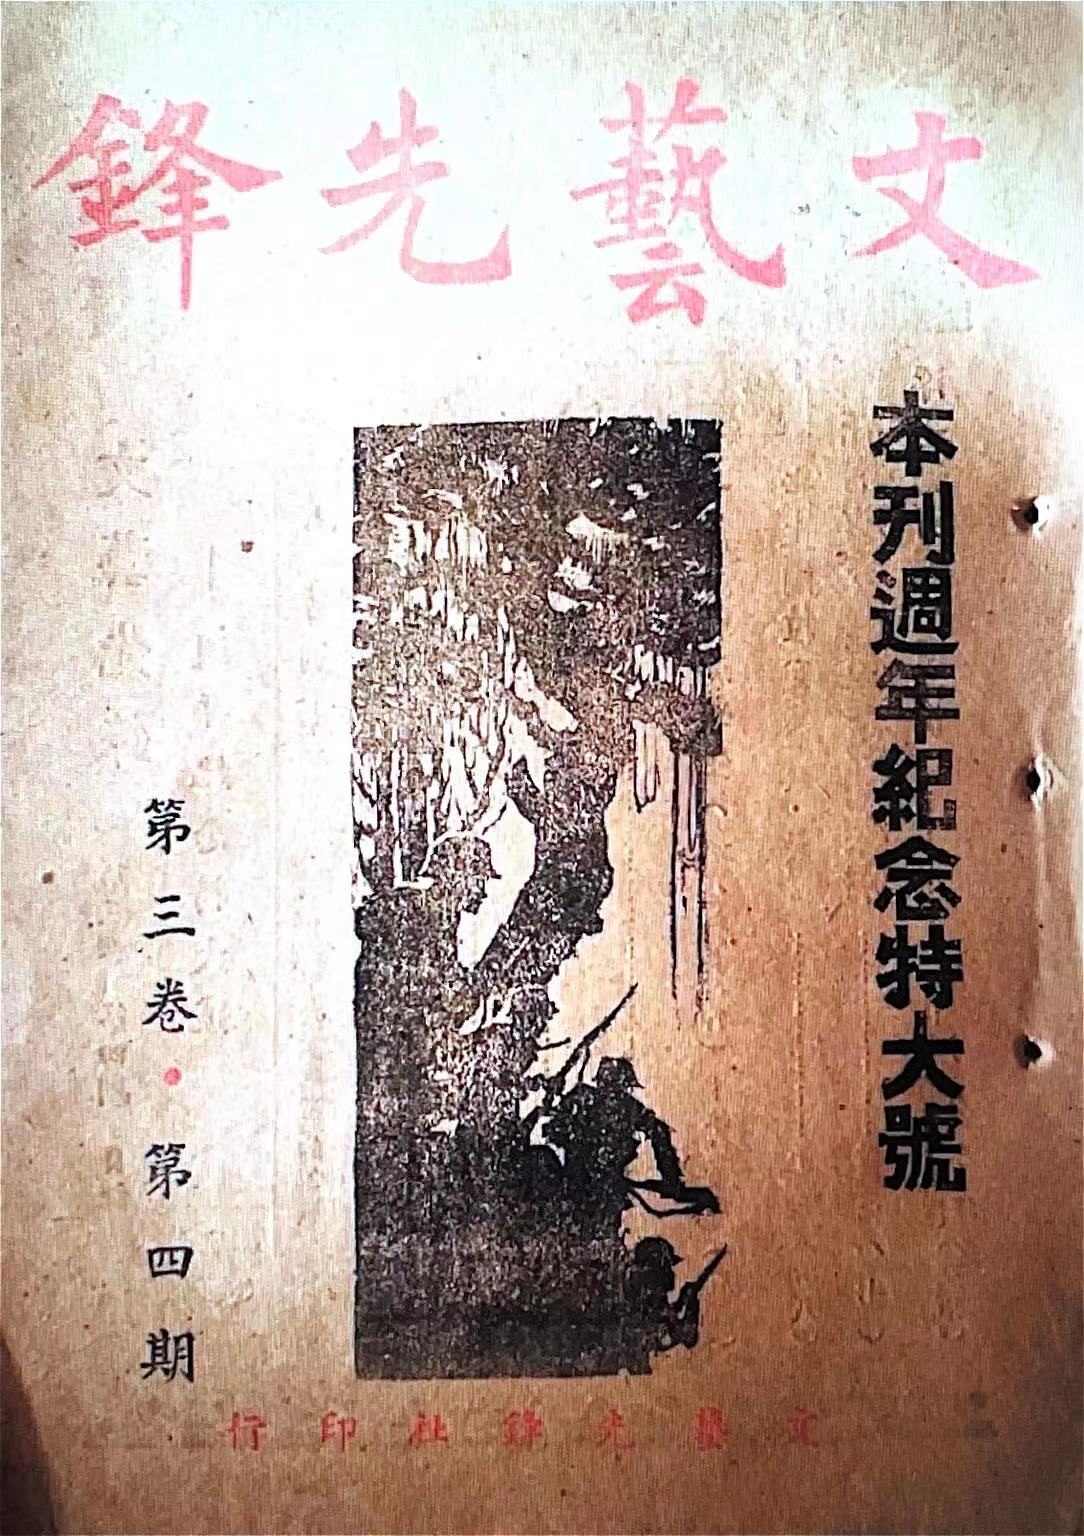 文藝先鋒
本刊週年紀念特大號
第三卷·第四期
文藝先鋒社印行